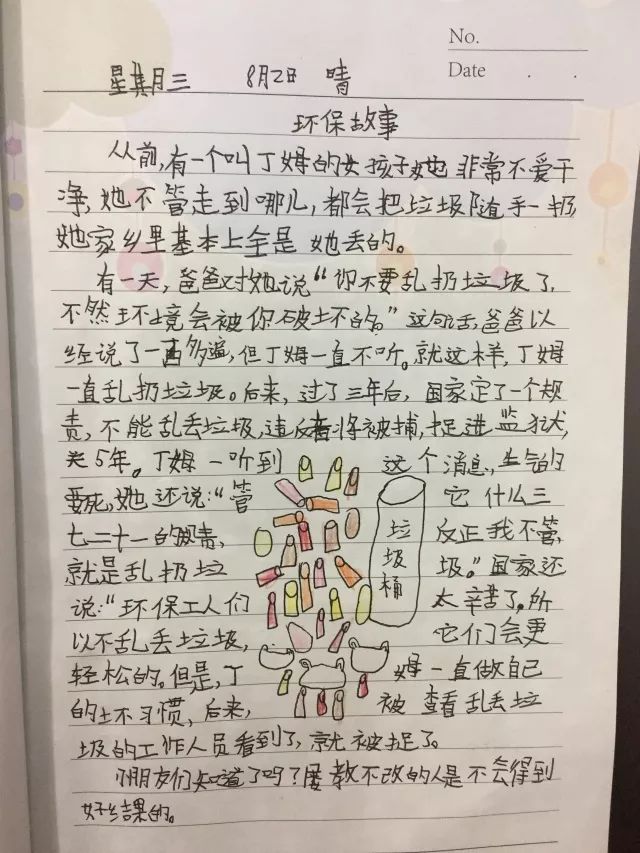 No.
Date . .
星其月三 8月2日 晴
环保故事
从前,有一个叫丁姆的女孩子她非常不爱干
净,她不管走到哪儿,都会把垃圾随手一扔,
她家乡里基本上全是她丢的。
有一天,爸爸对她说“你不要乱扔垃圾了,
不然环境会被你破坏的。”这句话,爸爸以
经说了一百多遍,但丁姆一直不听。就这样,丁姆
一直乱扔垃圾。后来,过了三年后,国家定了一个规
责,不能乱丢垃圾,违反者将被捕,捉进监狱,
关5年。丁姆一听到 这个消息,生气的
要死,她还说:“管 它什么三
七二十一的规责, 反正我不管,
就是乱扔垃 圾。”国家还
说:“环保工人们 太辛苦了。所
以不乱丢垃圾, 它们会更
轻松的。但是,丁 姆一直做自己
的坏习惯,后来, 被查看乱丢垃
圾的工作人员看到了,就被捉了。
小朋友们知道了吗?屡教不改的人是不会得到
好结果的。
垃圾桶